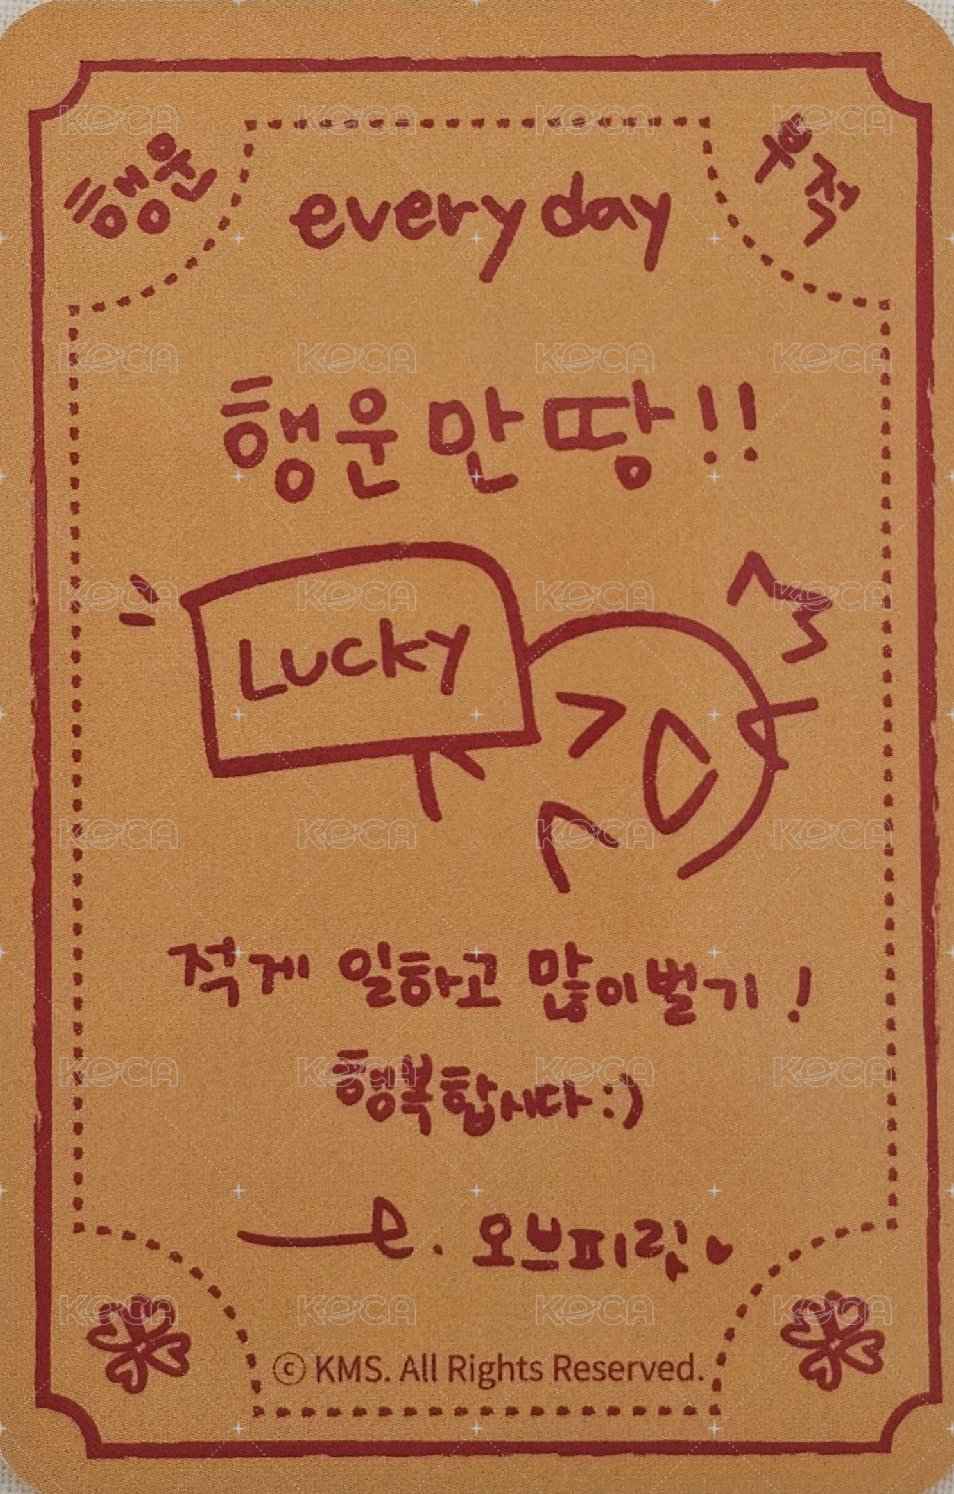 행운
부적
every day
행운만땅!!
Lucky
적게 일하고 많이벌기!
행복합시다:)
오브피릿♥
ⓒ KMS. All Rights Reserved.
KOCA